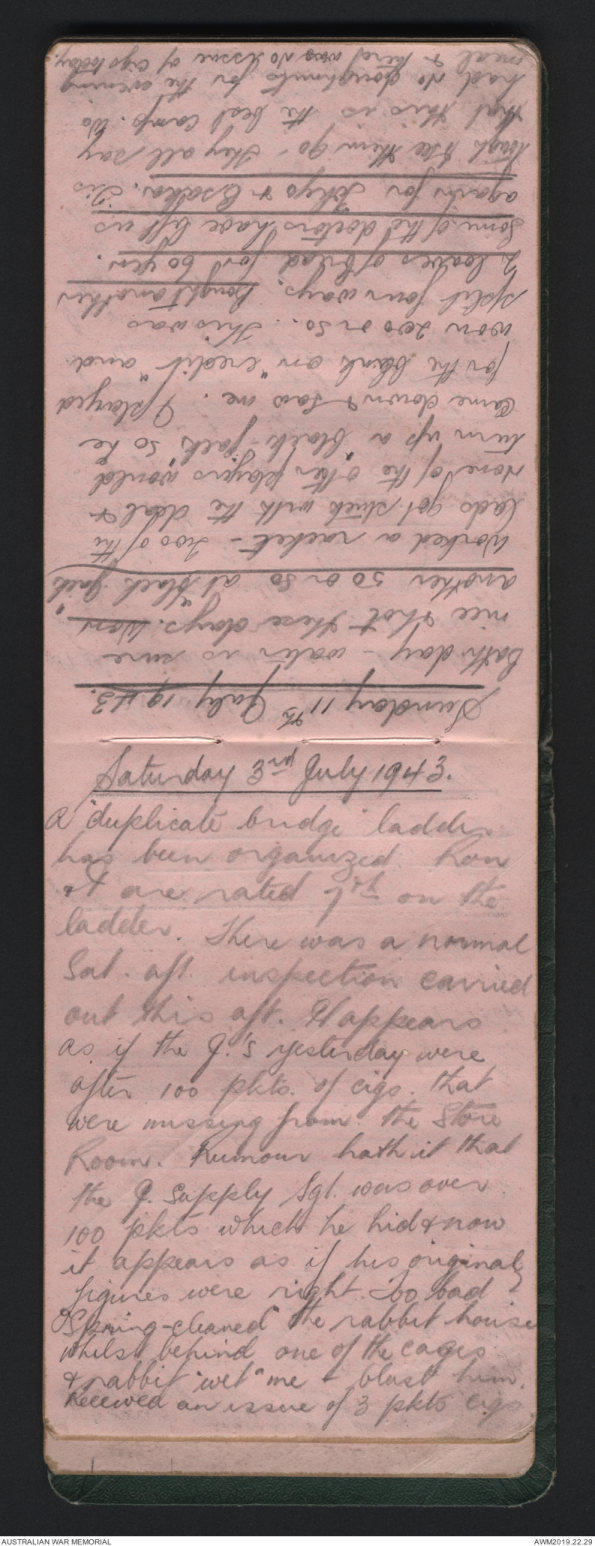 Sunday 11th July 1943.
bath day - water is sure
nice & hot these days. Won
another 50 or so at "black jack"
worked a racket - two of the
lads got stuck with the deal &
none of the other players would
turn up a "black-jack" so he
came down & saw me. I played
for the bank on "credit" and
won 200 or so. This was
split four ways. bought another
2 loaves of bread for 60 yen.
Some of the doctors have left us
again for Tokyo & Osaka. Tis
tough to see them go - they all say
that this is the best camp. We
had no doughnuts for the evening
meal & there was no issue of cigs today.
Saturday 3rd July 1943.
A "duplicate bridge" ladder
has been organized. Ron
& I are rated 7th on the
ladder. There was a normal
Sat. aft. inspection carried
out this aft. It appears
as if the J.'s yesterday were
after 100 pkts. of cigs. that
were missing from the Store
Room. Rumour hath it that
the J. Supply Sgt. was over
100 pkts which he hid & now
it appears as if his original
figures were right. Too bad
"Spring-cleaned" the rabbit house
whilst behind one of the cages
a rabbit "wet" me - blast him.
Received an issue of 3 pkts cigs
AUSTRALIAN WAR MEMORIAL
AWM2019.22.29